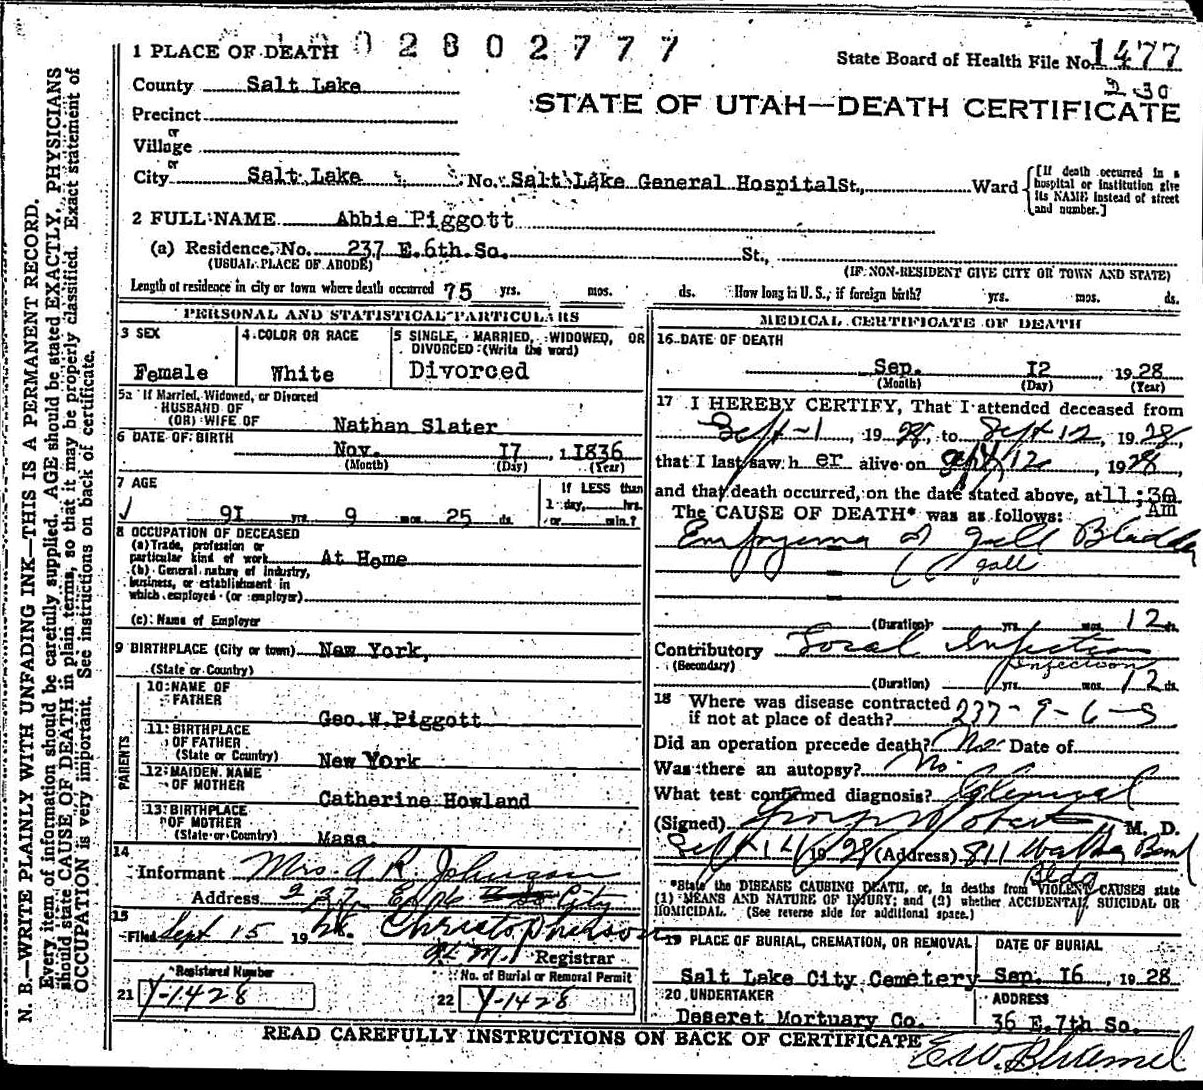 1 PLACE OF DEATH 002802777
State Board of Health File No. 1477
County Salt Lake
230
STATE OF UTAH—DEATH CERTIFICATE
Precinct
or
Village
or
City Salt Lake No. Salt Lake General Hospital St., Ward
[If death occurred in a hospital or institution give its NAME instead of street and number.]
2 FULL NAME Abbie Piggott
(a) Residence. No. 237 E. 6th. So. St.,
(USUAL PLACE OF ABODE) (IF NON-RESIDENT GIVE CITY OR TOWN AND STATE)
Length of residence in city or town where death occurred 75 yrs. mos. ds. How long in U. S., if foreign birth? yrs. mos. ds.
PERSONAL AND STATISTICAL PARTICULARS
3 SEX
Female
4 COLOR OR RACE
White
5 SINGLE, MARRIED, WIDOWED, OR DIVORCED (Write the word)
Divorced
5a If Married, Widowed, or Divorced
HUSBAND OF
(OR) WIFE OF Nathan Slater
6 DATE OF BIRTH
Nov. 17 1836
(Month) (Day) (Year)
7 AGE
91 yrs 9 mos 25 ds.
If LESS than
1 day, hrs.
or min.?
8 OCCUPATION OF DECEASED
(a) Trade, profession or
particular kind of work At Home
(b) General nature of Industry,
business, or establishment in
which employed (or employer)
(c) Name of Employer
9 BIRTHPLACE (City or town) New York,
(State or Country)
PARENTS
10 NAME OF
FATHER
Geo. W. Piggott
11 BIRTHPLACE
OF FATHER
(State or Country) New York
12 MAIDEN NAME
OF MOTHER
Catherine Howland
13 BIRTHPLACE
OF MOTHER
(State or Country) Mass.
14
Informant Mrs. A. R. Johnson
Address 237 E City
15
Filed Sept 15 19 28. Christopherson
Registrar
Registered Number
21 Y-1428
No. of Burial or Removal Permit
22 Y-1428
MEDICAL CERTIFICATE OF DEATH
16 DATE OF DEATH
Sep. 12 1928
(Month) (Day) (Year)
17 I HEREBY CERTIFY, That I attended deceased from
Sept-1, 1928, to Sept 12, 1928,
that I last saw her alive on Sept 12 1928
and that death occurred, on the date stated above, at 11:30
Am
The CAUSE OF DEATH* was as follows:
Empyema of Gall Bladder
gall
(Duration) yrs. mos. 12 ds.
Contributory Focal Infection
(Secondary) infection
(Duration) yrs. mos. 12 ds.
18 Where was disease contracted
if not at place of death? 237-9-6-S
Did an operation precede death? No Date of
Was there an autopsy? No.
What test confirmed diagnosis? Clinical
(Signed) M. D.
Sept 14 1928 (Address) 811 Walker Bank
Bldg
*State the DISEASE CAUSING DEATH, or, in deaths from VIOLENT CAUSES state
(1) MEANS AND NATURE OF INJURY; and (2) whether ACCIDENTAL, SUICIDAL OR
HOMICIDAL. (See reverse side for additional space.)
19 PLACE OF BURIAL, CREMATION, OR REMOVAL
Salt Lake City Cemetery
DATE OF BURIAL
Sep. 16 1928
20 UNDERTAKER
Deseret Mortuary Co.
ADDRESS
36 E. 7th So.
READ CAREFULLY INSTRUCTIONS ON BACK OF CERTIFICATE
N. B.—WRITE PLAINLY WITH UNFADING INK—THIS IS A PERMANENT RECORD.
Every item of information should be carefully supplied. AGE should be stated EXACTLY. PHYSICIANS
should state CAUSE OF DEATH in plain terms, so that it may be properly classified. Exact statement of
OCCUPATION is very important. See instructions on back of certificate.